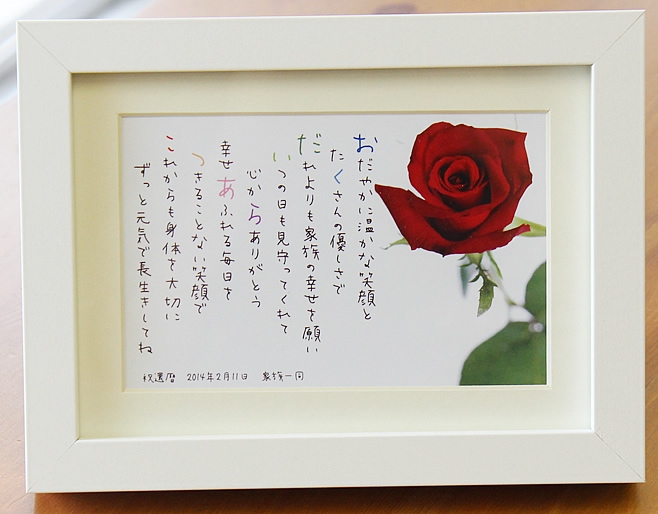 おだやかに温かな笑顔と
たくさんの優しさで
だれよりも家族の幸せを願い
いつの日も見守ってくれて
心からありがとう
幸せあふれる毎日を
つきることない笑顔で
これからも身体を大切に
ずっと元気で長生きしてね
祝還暦 2014年2月11日 家族一同